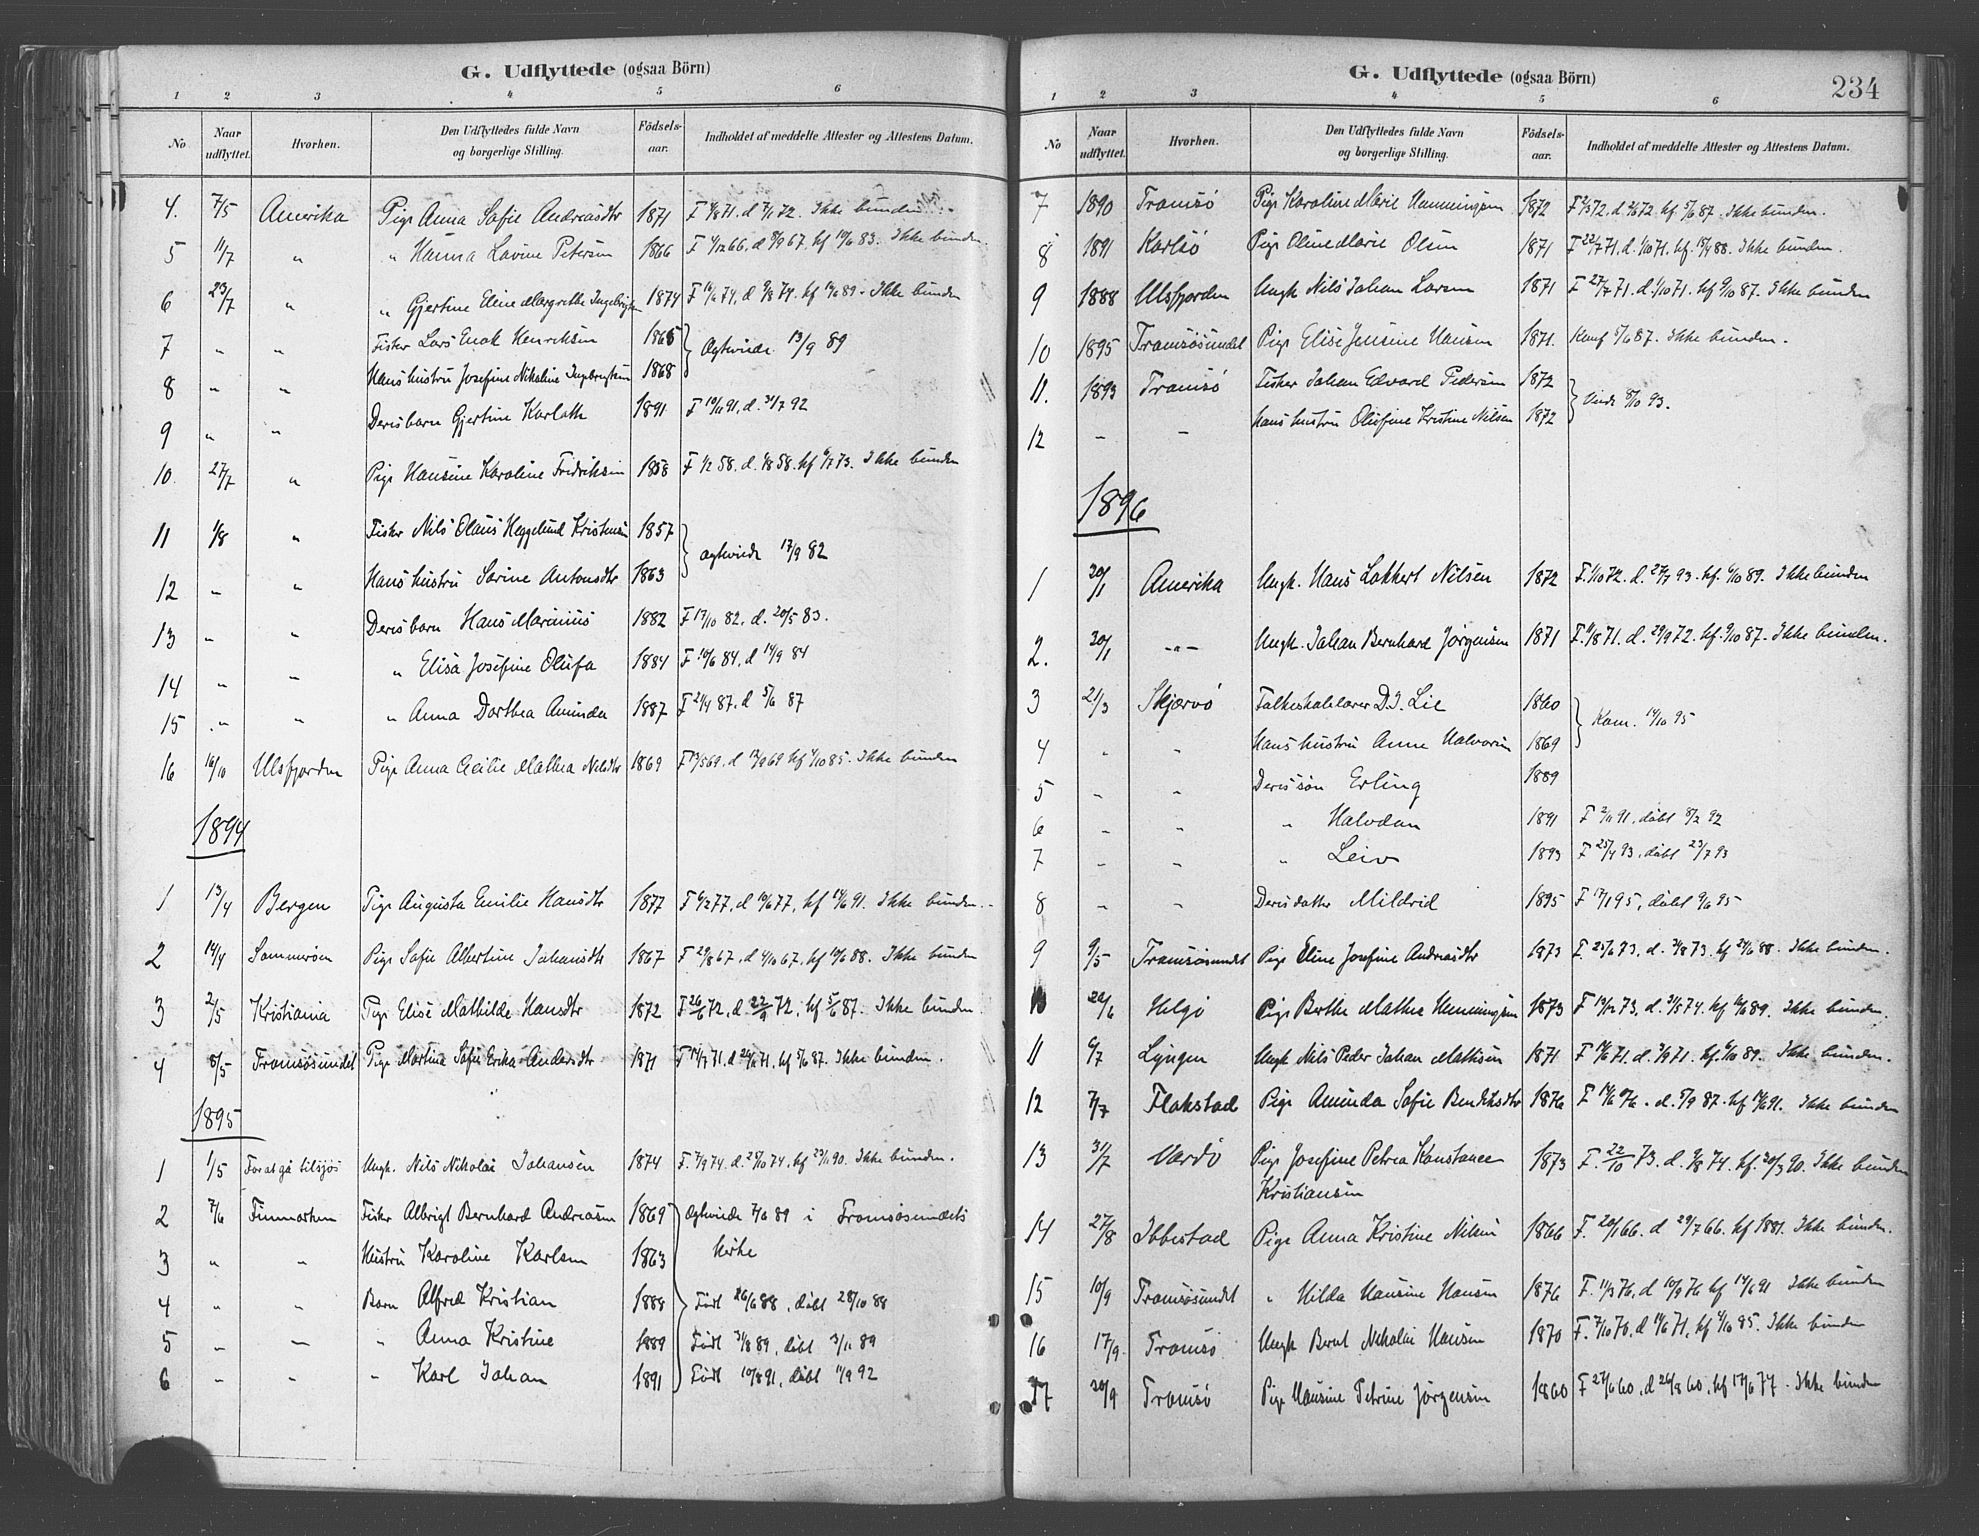 G. Udflyttede (ogsaa Börn)
1 2 3 4 5 6
No Naar udflyttet. Hvorhen. Den Udflyttedes fulde Navn og borgerlige Stilling. Födsels-aar. Indholdet af meddelte Attester og Attestens Datum.
4. 7/5 Amerika Pige Anna Sofie Andreasdtr 1871 Ikke bunden
5 11/7 " " Hanna Lovine Petersen 1866 Ikke bunden
6 23/7 " " Gjertine Eline Margrethe Ingebrigtsen 1874 Ikke bunden
7 " " Fisker Lars Enok Henriksen 1865 Ægtevidde 13/9 89
8 " " Hans hustru Josefine Nikoline Ingebrigtsen 1868
9 " " Deres barn Gjertine Karlotte 1891 F 19/11 91, d. 31/7 92
10. 27/7 " Pige Hansine Karoline Fredriksen 1858 Ikke bunden
11 1/8 " Fisker Nils Olaus Heggelund Kristensen 1857 Ægtevidde 17/9 82
12 " " Hans hustru Sorine Antonsdtr 1863
13 " " Deres barn Hans Marinius 1882 F 13/10 82, d. 20/5 83.
14 " " " Elisa Josefine Olufa 1884 F 10/6 84, d 14/9 84
15 " " " Anna Dorthea Aminda 1887 F 21/4 87. d 5/6 87
16 16/10 Ulsfjorden Pige Anna Cecilie Mathea Nilsdtr 1869 Ikke bunden
1894
1 13/4 Bergen Pige Augusta Emilie Hansdtr 1877 Ikke bunden
2 14/4 Sommerøen Pige Sofie Albertine Johansdtr 1867 Ikke bunden
3 2/5 Kristiania Pige Elise Mathilde Hansdtr 1872 F 26/6 72, d 22/9 72, kf 5/6 87. Ikke bunden
4 8/5 Tromsøsundet Pige Martina Sofie Erika Andersdtr 1871 Ikke bunden.
1895
1 1/5 For at gå tilsjøs Ungk. Nils Nikolai Johansen 1874 F. 7/9 74. d. 25/10 74, kf 23/11 90. Ikke bunden.
2 7/6 Finmarken Fisker Albrigt Bernhard Andreasen 1869 Ægtevidde 7/6 89 i Tromsøsundets
3 " " Hustru Karoline Karlsen 1863 kirke
4 " " Barn Alfred Kristian 1888 Født 26/6 88, døbt 28/10 88
5 " " " Anna Kristine 1889 Født 31/8 89, døbt 3/11 89
6 " " " Karl Johan 1891 Født 10/8 91, døbt 11/9 92
G. Udflyttede (ogsaa Börn) 234
1 2 3 4 5 6
No Naar udflyttet. Hvorhen. Den Udflyttedes fulde Navn og borgerlige Stilling. Födsels-aar. Indholdet af meddelte Attester og Attestens Datum.
7 1890 Tromsö Pige Karoline Marie Henningsen 1872 Ikke bunden.
8 1891 Karlsö Pige Oline Marie Olsen 1871 Ikke bunden.
9 1888 Ulsfjorden Ungk Nils Johan Larsen 1871 F 27/7 71. d. 1/10 71. kf 9/10 87. Ikke bunden
10 1895 Tromsøsundet Pige Elise Jensine Hansen 1871. Konf 5/6 87. Ikke bunden.
11. 1893 Tromsö Fisker Johan Edvard Pedersen 1872 Viede 8/10 93.
12 " " Hans hustru Olufine Kristine Nilsen 1872
1896
1 20/1 Amerika Ungk. Hans Lokkert Nilsen 1872 Ikke bunden
2. 20/1 -"- Ungk. Johan Bernhard Jørgensen 1871 F. 11/8 71. d. 29/9 72. kf. 9/10 87. Ikke bunden.
3 21/3 Skjervö Folkeskolelærer D. J. Lie 1860 Kom. 14/10 95
4 " " Hans hustru Anne Halvorsen 1869
5 " " Deres søn Erling 1889
6 " " " Halvdan 1891 F 2/11 91, døbt 8/2 92
7 " " " Leiv 1893 F 25/4 93, døbt 23/7 93
8 " " Deres datter Mildrid 1895 døbt 9/6 95
9 9/5 Tromsøsundet Pige Eline Josefine Andreasdtr 1873 Ikke bunden.
10 22/6 Helgö Pige Berthe Mathea Henningsen 1873 Ikke bunden.
11 6/7 Lyngen Ungk Nils Peder Johan Mathisen 1871 Ikke bunden.
12 7/7 Flakstad Pige Aminda Sofie Bendiksdtr 1876 Ikke bunden
13 31/7 Vardö Pige Josefine Petrea Konstance Kristiansen 1873 F. 22/10 73. d. 9/8 74. kf. 30/3 90. Ikke bunden
14 27/8 Ibbestad Pige Anna Kristine Nilsen 1866 F. 20/1 66. d 29/7 66. kf 1881. Ikke bunden.
15 10/9 Tromsøsundet " Hilda Hansine Hansen 1876 F. 11/3 76, d 10/9 76 kf 14/6 91 Ikke bunden
16 17/9 Tromsö Ungk Bernt Nikolai Hansen 1870 Ikke bunden
17 20/9 Tromsö Pige Hansine Petrine Jørgensen 1860 F 27/6 60, d 26/8 60, kf 17/6 77. Ikke bunden